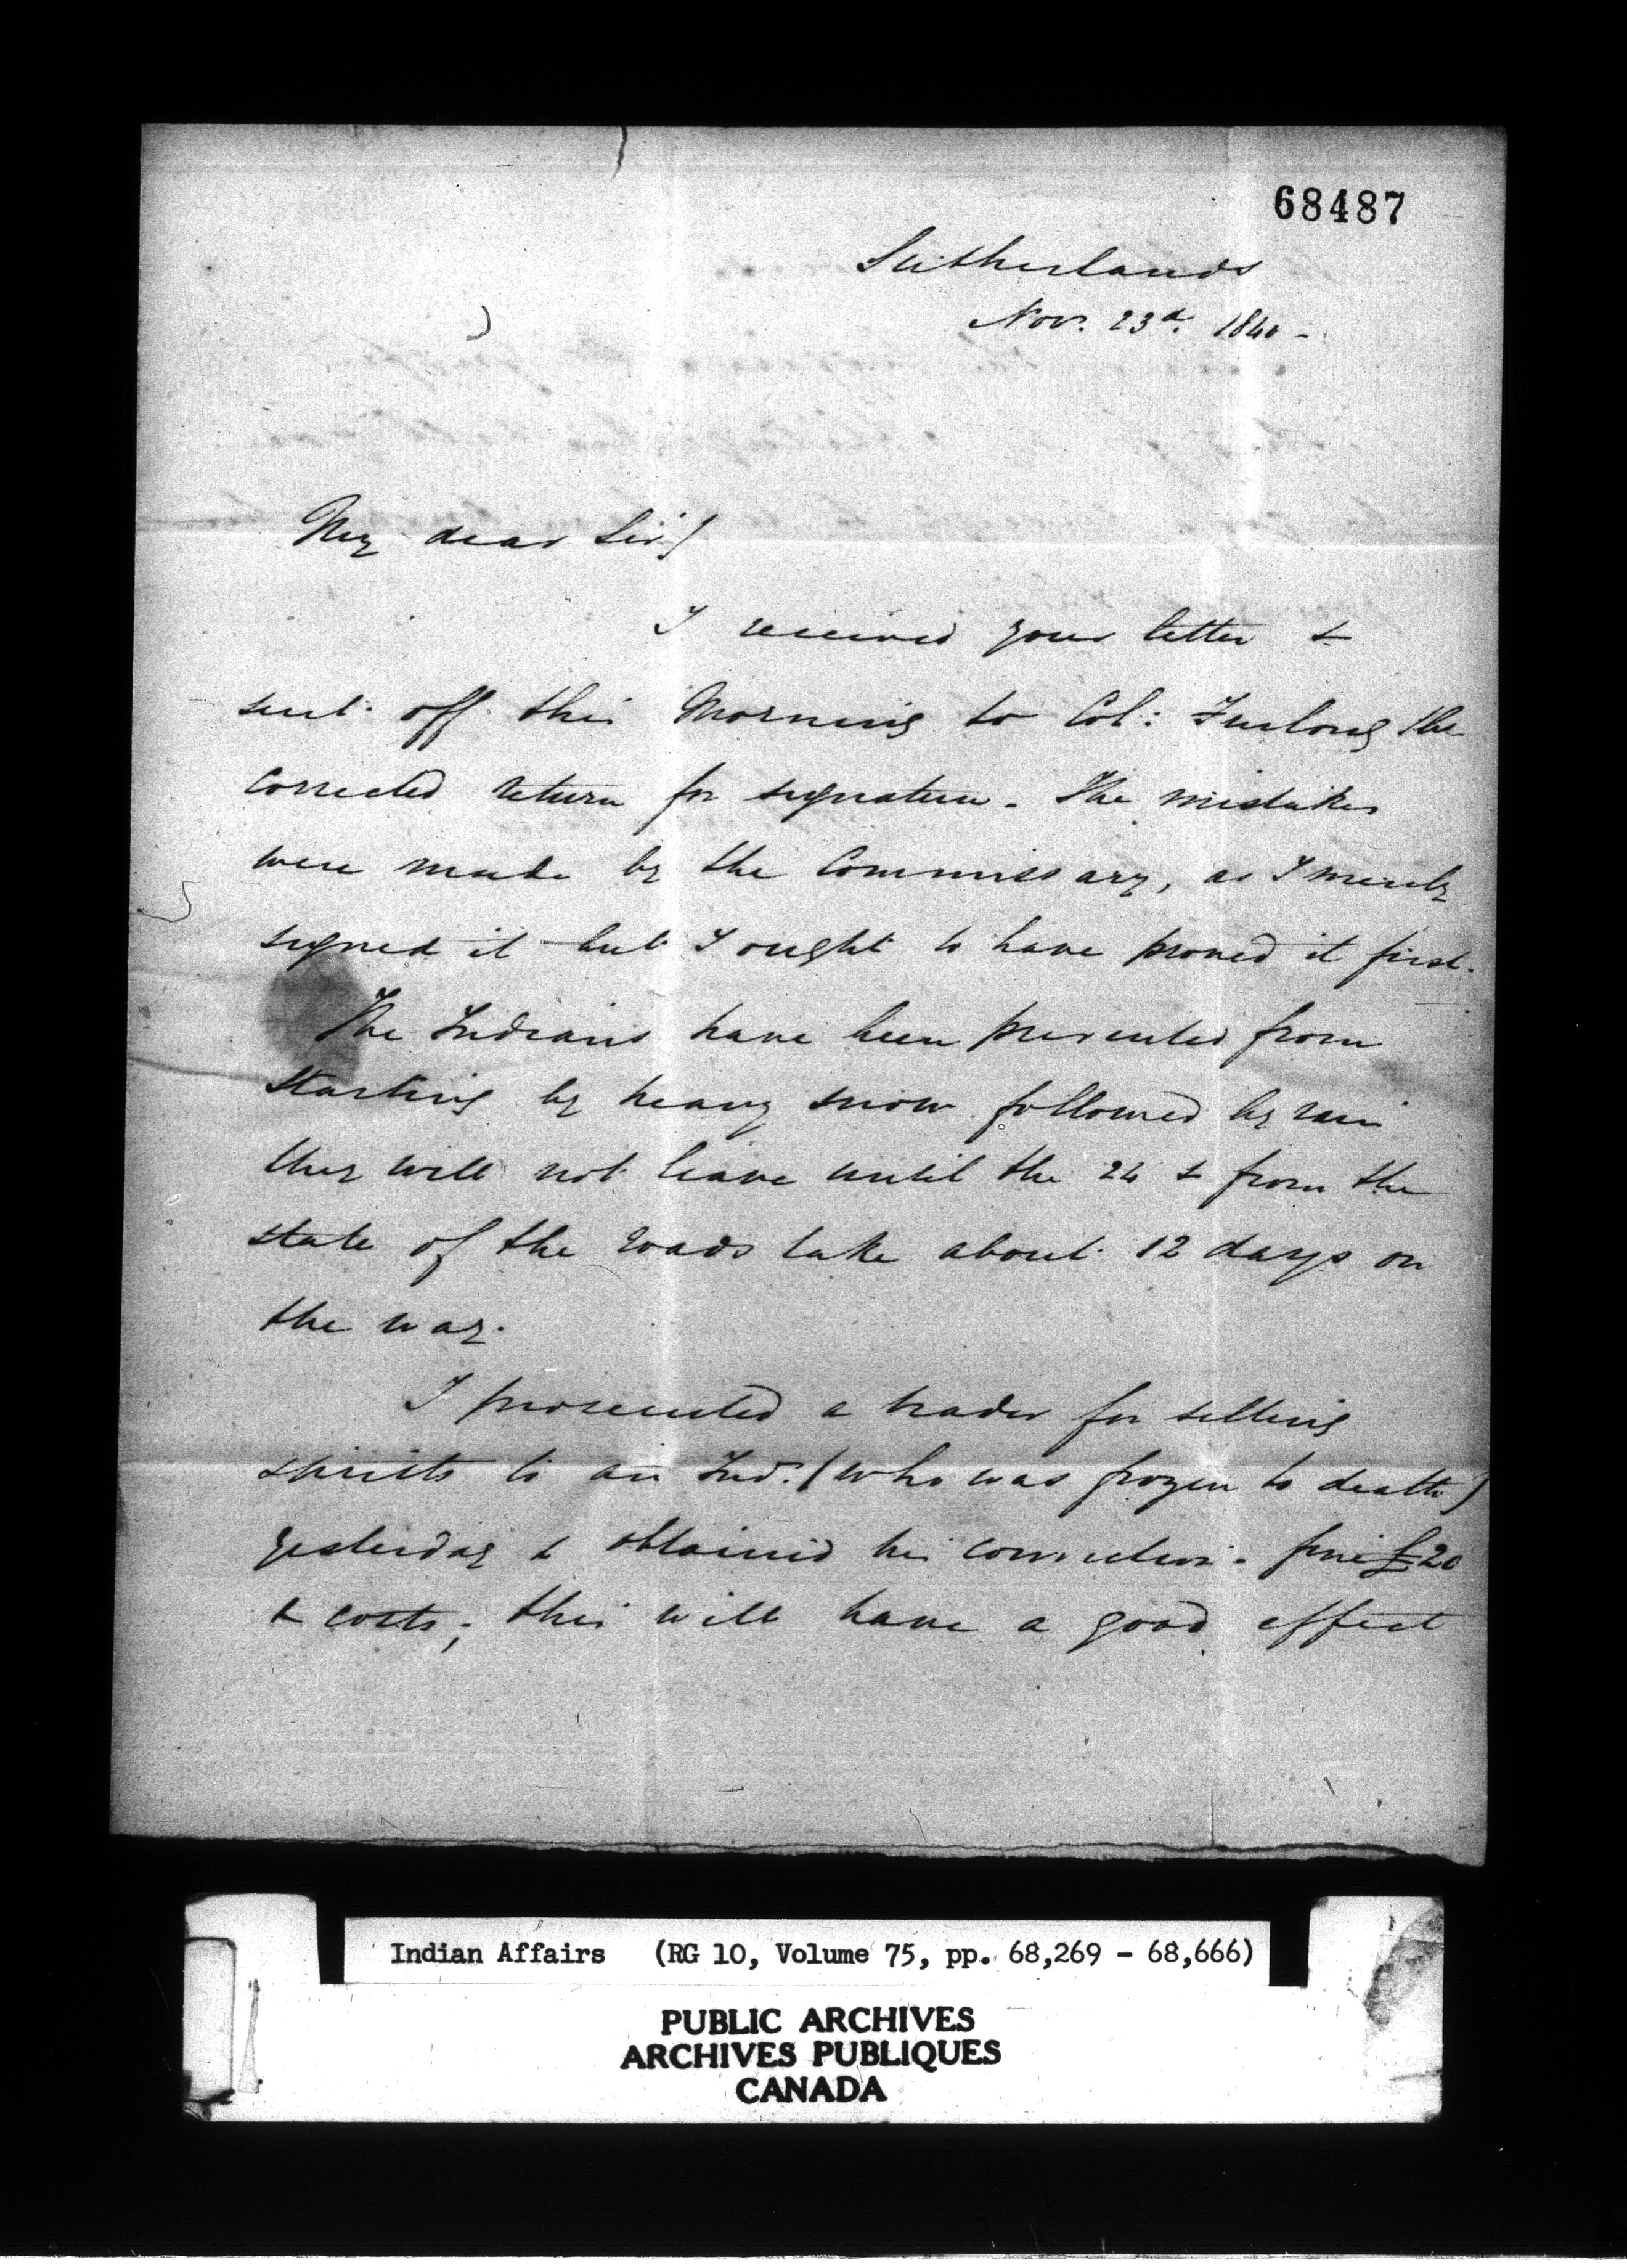 68487
Sutherlands
Nov. 23d. 1840 -
My dear Sir/
I received your letter &
sent off this Morning to Col: Furlong the
corrected return for signature. The mistakes
were made by the Commissary, as I merely
signed it but I ought to have proved it first.
The Indians have been prevented from
starting by heavy snow followed by rain
they will not leave until the 24 & from the
state of the roads take about 12 days on
the way.
I prosecuted a trader for selling
spirits to an Ind. (who was frozen to death)
yesterday & obtained his conviction - fine £20
& costs; this will have a good effect
Indian Affairs (RG 10, Volume 75, pp. 68,269 - 68,666)
PUBLIC ARCHIVES
ARCHIVES PUBLIQUES
CANADA